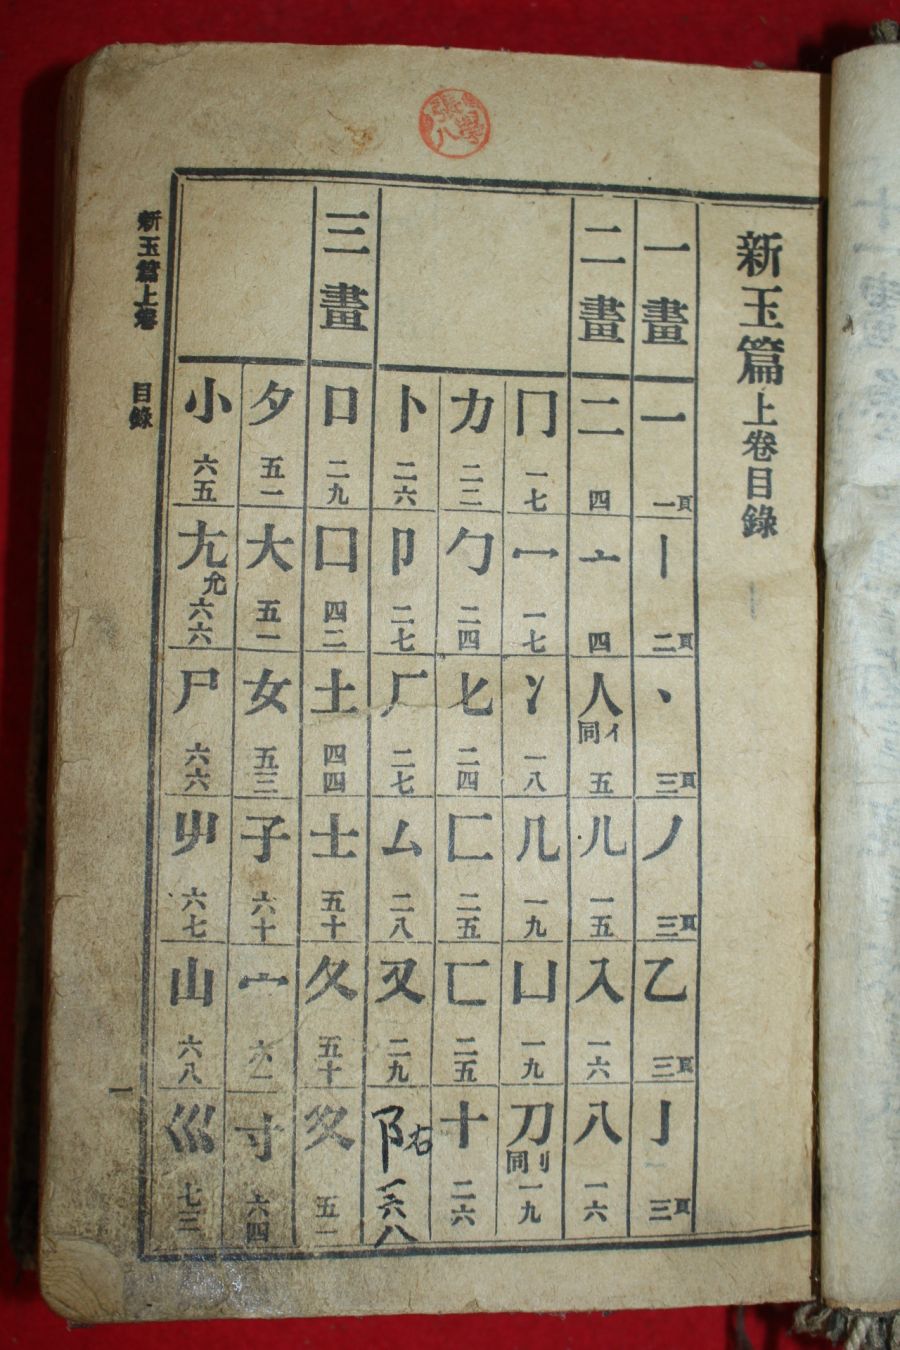 新玉篇上卷目錄
一畫
一 一頁
丨 二頁
丶 三頁
丿 三頁
乙 三頁
亅 三頁
二畫
二 四
亠 四
人 亻同 五
儿 一五
入 一六
八 一六
冂 一七
冖 一七
冫 一八
几 一九
凵 一九
刀 刂同 一九
力 二二
勹 二四
匕 二四
匚 二五
匸 二五
十 二六
卜 二六
卩 二七
厂 二七
厶 二八
又 二九
阝右 一六八
三畫
口 二九
囗 四二
土 四四
士 五十
夂 五十
夊 五一
夕 五一
大 五一
女 五三
子 六十
宀 六一
寸 六四
小 六五
尢 允 六六
尸 六六
屮 六七
山 六八
巛 七三
新玉篇上卷 目錄
一